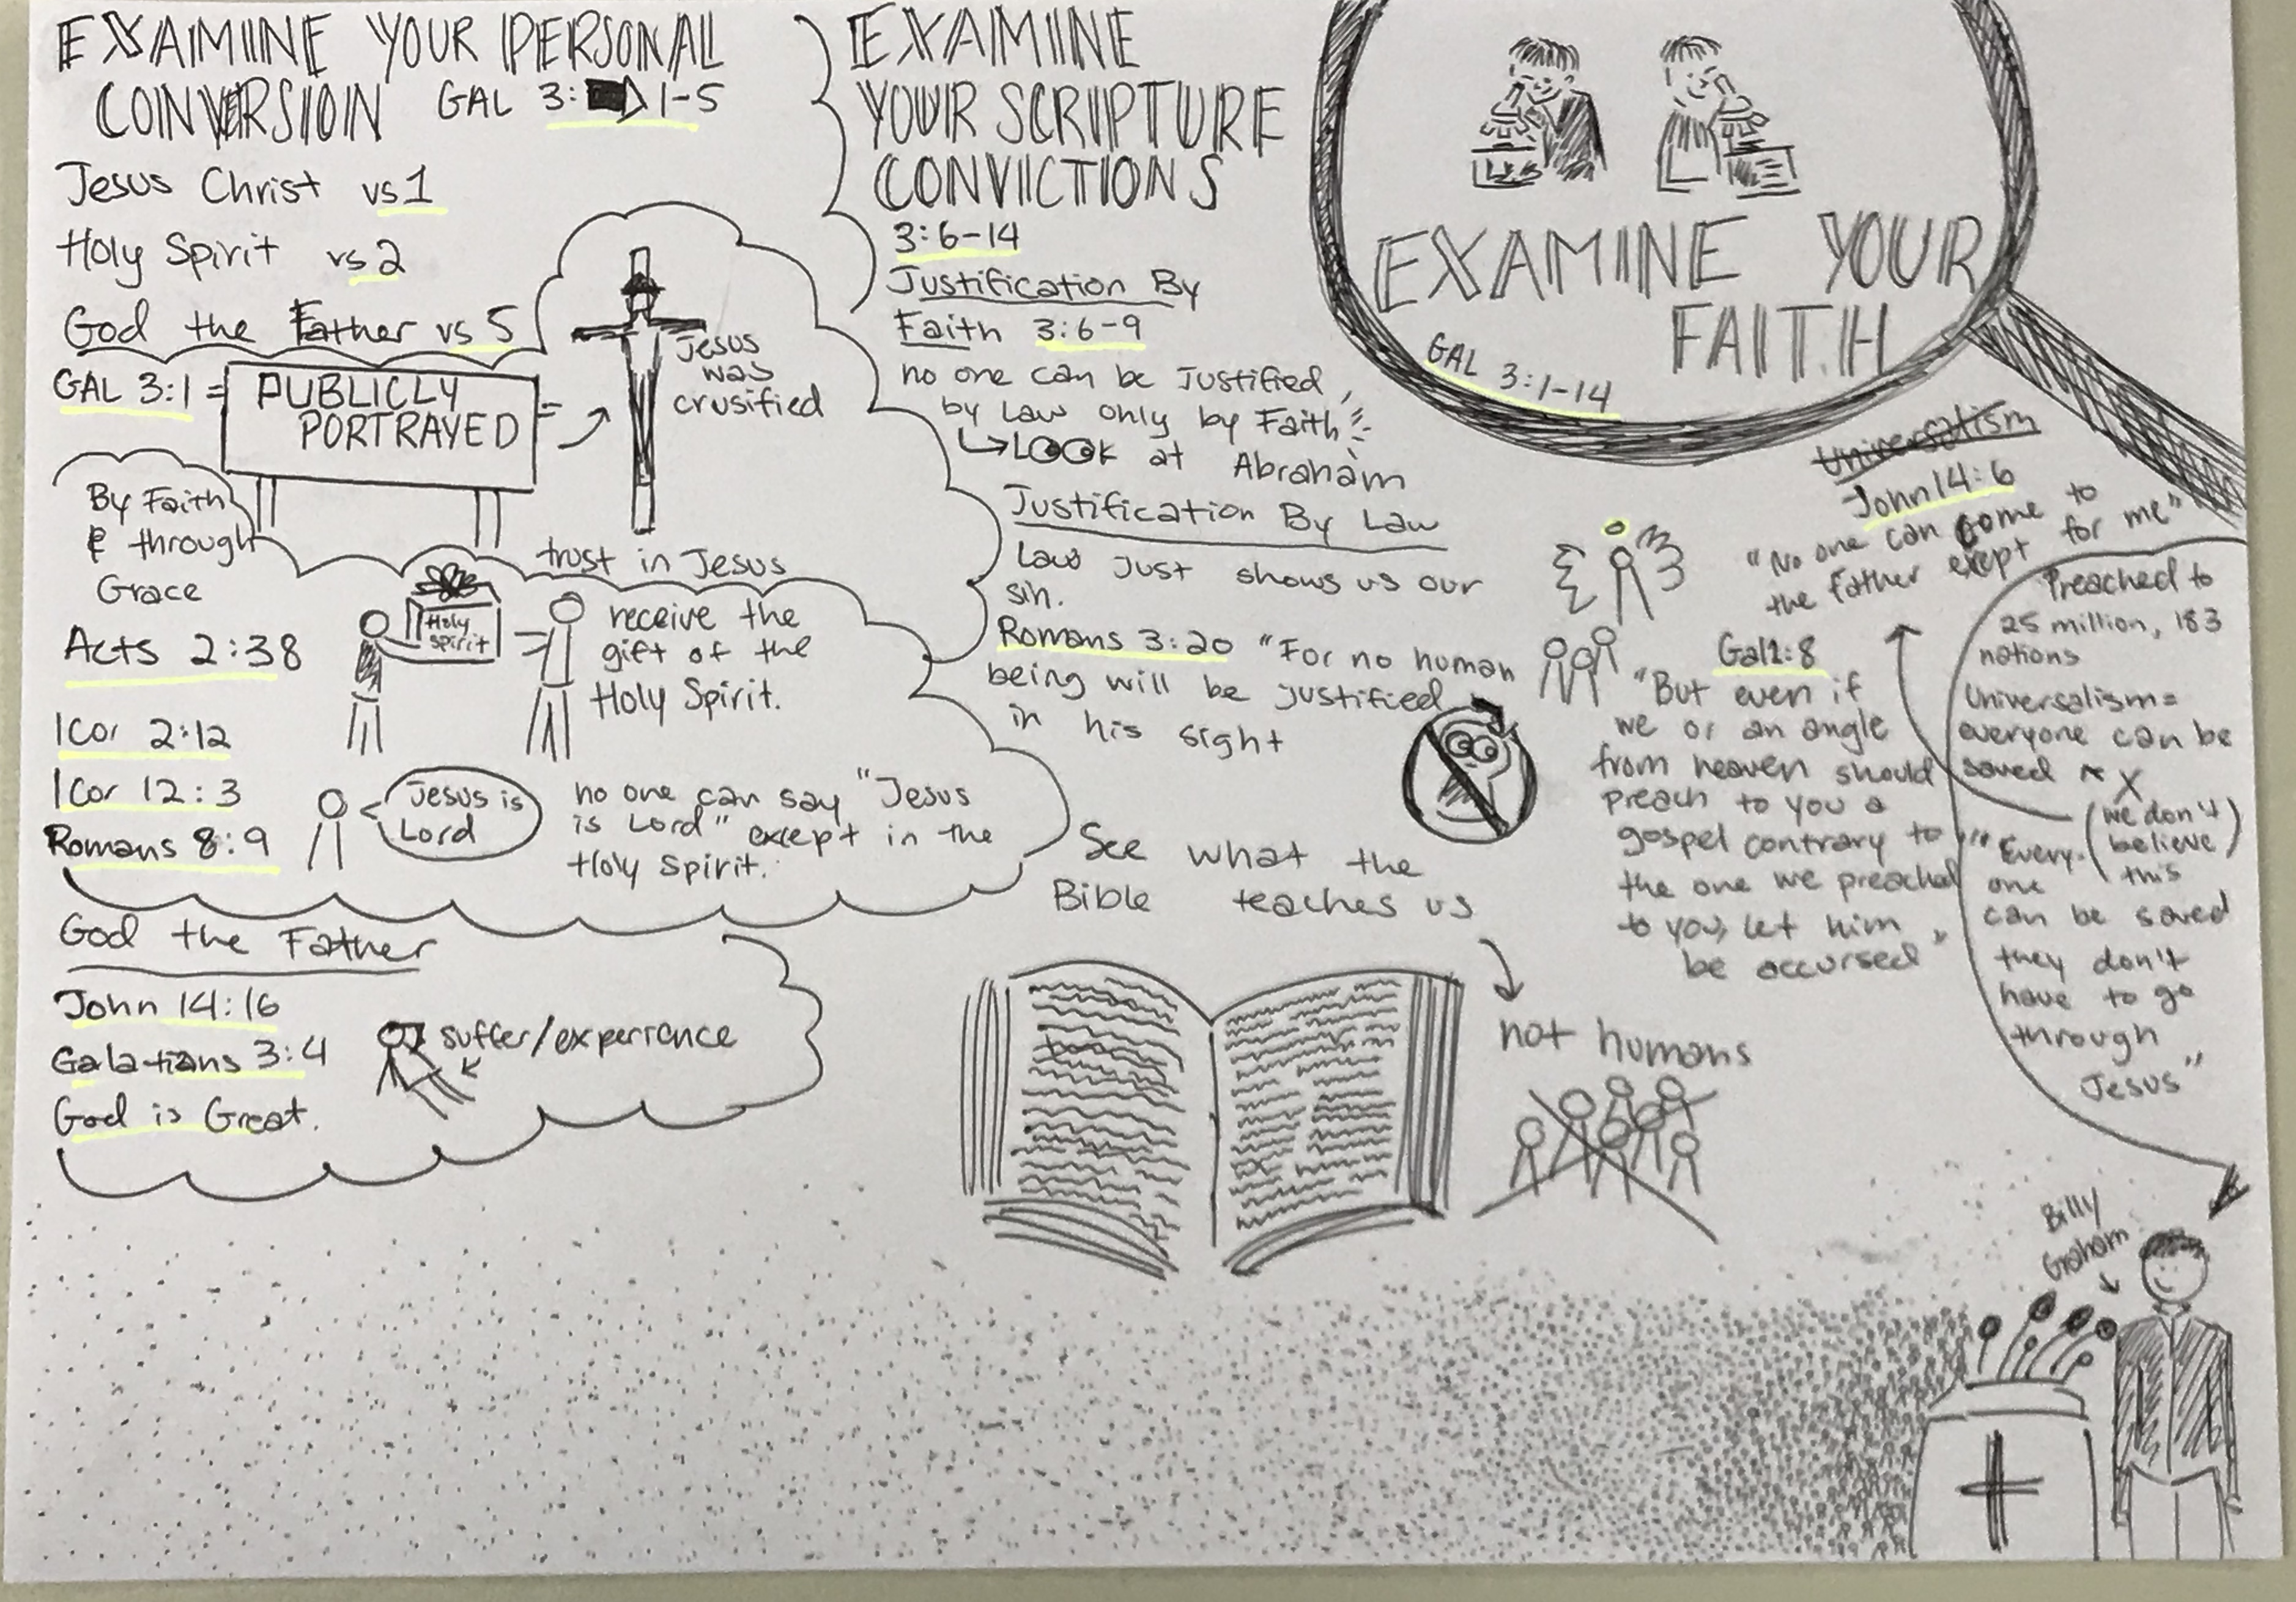 EXAMINE YOUR PERSONAL
CONVERSION GAL 3: 1-5
Jesus Christ vs 1
Holy Spirit vs 2
God the Father vs 5
GAL 3:1 =
PUBLICLY
PORTRAYED
=
Jesus
was
crusified
By Faith
& through
Grace
trust in Jesus
Acts 2:38
Holy
Spirit
receive the
gift of the
Holy Spirit.
1Cor 2:12
1Cor 12:3
Romans 8:9
Jesus is
Lord
no one can say "Jesus
is Lord" except in the
Holy Spirit.
God the Father
John 14:16
Galatians 3:4
God is Great.
suffer/experience
EXAMINE
YOUR SCRIPTURE
CONVICTIONS
3:6-14
Justification By
Faith 3:6-9
no one can be Justified
by Law only by Faith
LOOK at Abraham
Justification By Law
Law Just shows us our
sin.
Romans 3:20 "For no human
being will be justified
in his sight
See what the
Bible teaches us
not humans
EXAMINE YOUR
FAITH
GAL 3:1-14
Universalism
John 14:6
"No one can come to
the Father exept for me"
Gal 1:8
"But even if
we or an angle
from heaven should
preach to you a
gospel contrary to
the one we preached
to you, let him
be accursed"
Preached to
25 million, 183
nations
Universalism=
everyone can be
saved X
(we don't
believe
this)
"Every-
one
can be saved
they don't
have to go
through
Jesus"
Billy
Graham